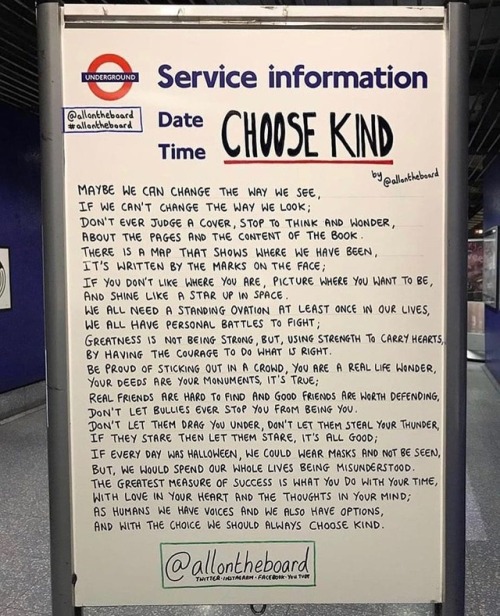 UNDERGROUND
Service information
@allontheboard
#allontheboard
Date
Time
CHOOSE KIND
by @allontheboard
MAYBE WE CAN CHANGE THE WAY WE SEE,
IF WE CAN'T CHANGE THE WAY WE LOOK;
DON'T EVER JUDGE A COVER, STOP TO THINK AND WONDER,
ABOUT THE PAGES AND THE CONTENT OF THE BOOK.
THERE IS A MAP THAT SHOWS WHERE WE HAVE BEEN,
IT'S WRITTEN BY THE MARKS ON THE FACE;
IF YOU DON'T LIKE WHERE YOU ARE, PICTURE WHERE YOU WANT TO BE,
AND SHINE LIKE A STAR UP IN SPACE.
WE ALL NEED A STANDING OVATION AT LEAST ONCE IN OUR LIVES,
WE ALL HAVE PERSONAL BATTLES TO FIGHT;
GREATNESS IS NOT BEING STRONG, BUT, USING STRENGTH TO CARRY HEARTS,
BY HAVING THE COURAGE TO DO WHAT IS RIGHT.
BE PROUD OF STICKING OUT IN A CROWD, YOU ARE A REAL LIFE WONDER,
YOUR DEEDS ARE YOUR MONUMENTS, IT'S TRUE;
REAL FRIENDS ARE HARD TO FIND AND GOOD FRIENDS ARE WORTH DEFENDING,
DON'T LET BULLIES EVER STOP YOU FROM BEING YOU.
DON'T LET THEM DRAG YOU UNDER, DON'T LET THEM STEAL YOUR THUNDER,
IF THEY STARE THEN LET THEM STARE, IT'S ALL GOOD;
IF EVERY DAY WAS HALLOWEEN, WE COULD WEAR MASKS AND NOT BE SEEN,
BUT, WE WOULD SPEND OUR WHOLE LIVES BEING MISUNDERSTOOD.
THE GREATEST MEASURE OF SUCCESS IS WHAT YOU DO WITH YOUR TIME,
WITH LOVE IN YOUR HEART AND THE THOUGHTS IN YOUR MIND;
AS HUMANS WE HAVE VOICES AND WE ALSO HAVE OPTIONS,
AND WITH THE CHOICE WE SHOULD ALWAYS CHOOSE KIND.
@allontheboard
TWITTER · INSTAGRAM · FACEBOOK · YOUTUBE